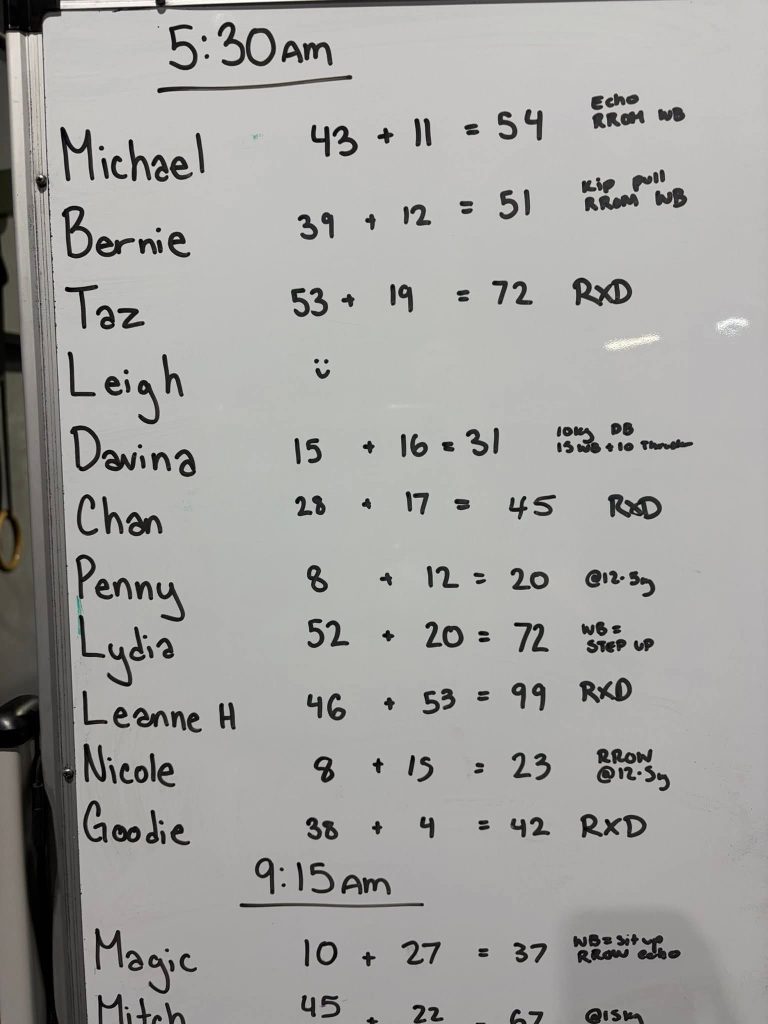 5:30Am
Michael 43 + 11 = 54 Echo
RROM WB
Bernie 39 + 12 = 51 Kip pull
RROM WB
Taz 53 + 19 = 72 RXD
Leigh
Davina 15 + 16 = 31 10kg DB
15 WB + 10
Chan 28 + 17 = 45 RXD
Penny 8 + 12 = 20 @12.5
Lydia 52 + 20 = 72 WB =
STEP UP
Leanne H 46 + 53 = 99 RXD
Nicole 8 + 15 = 23 RROW
@12.5
Goodie 38 + 4 = 42 RXD
9:15Am
Magic 10 + 27 = 37 WB = sit up
RROW echo
Mitch 45 + 22 = 67 @15kg